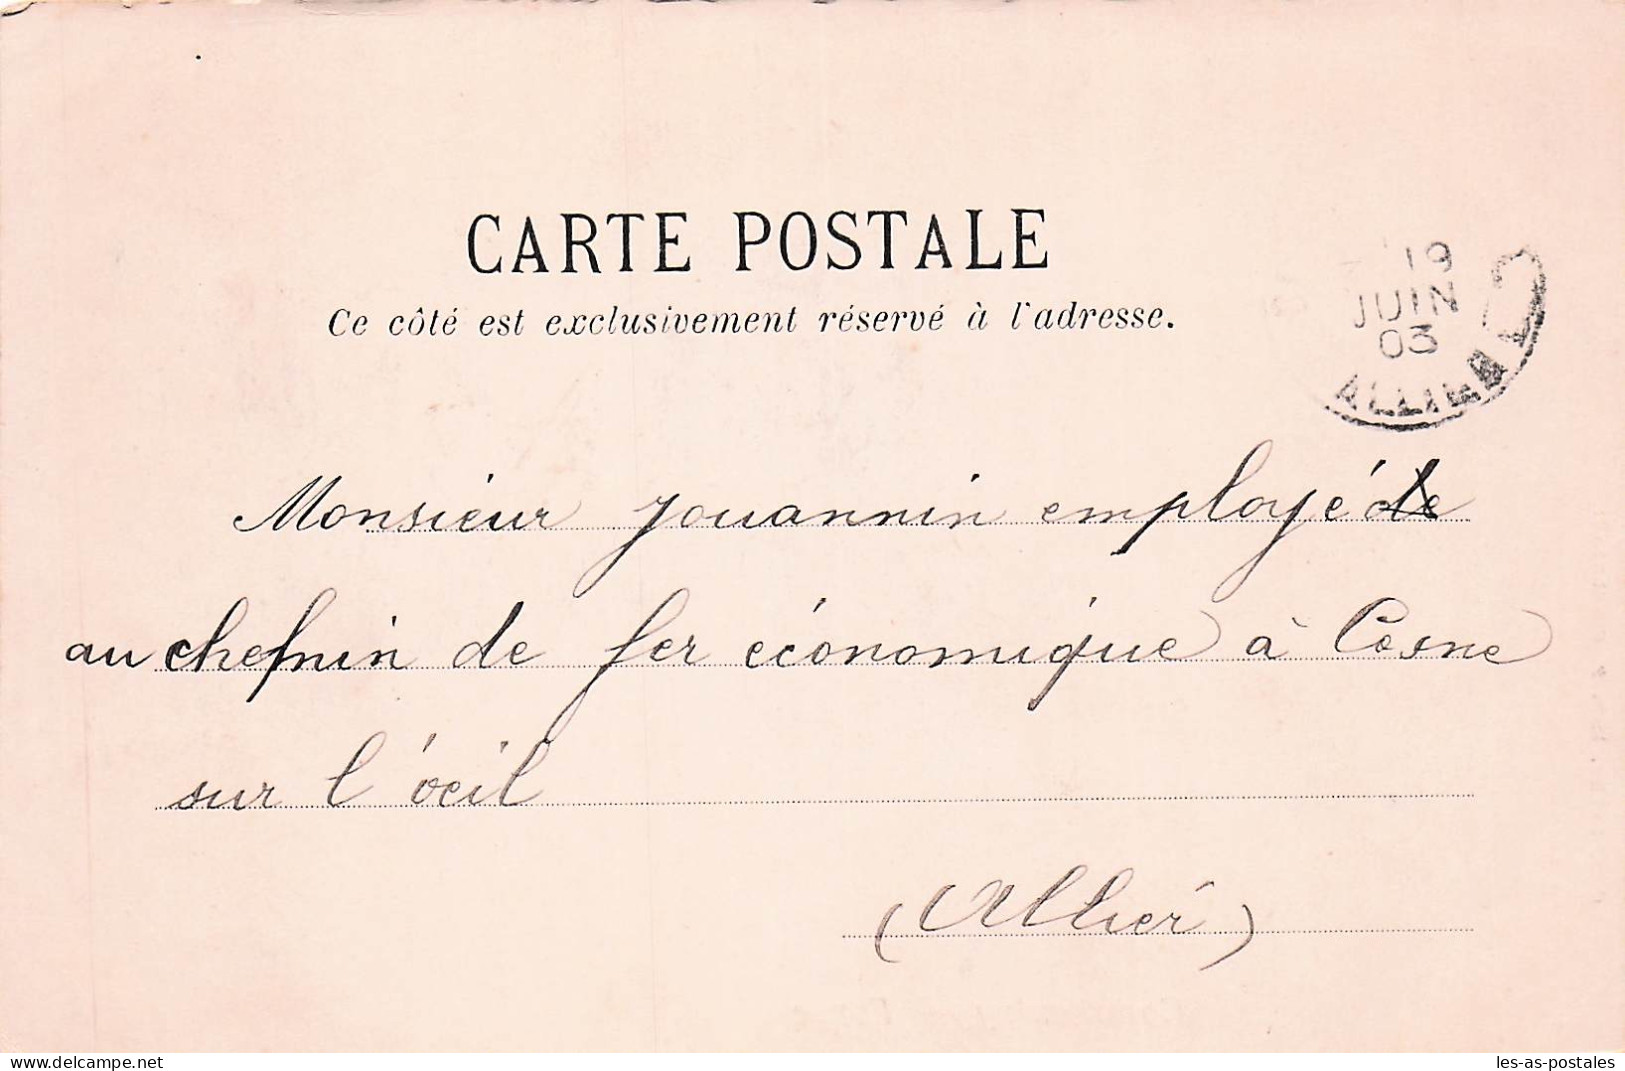 CARTE POSTALE
Ce côté est exclusivement réservé à l'adresse.
19
JUIN
03
ALLIER
Monsieur Jouannin employé de
au chemin de fer économique à Cosne
sur l'œil
(Allier)
www.delcampe.net
les-as-postales